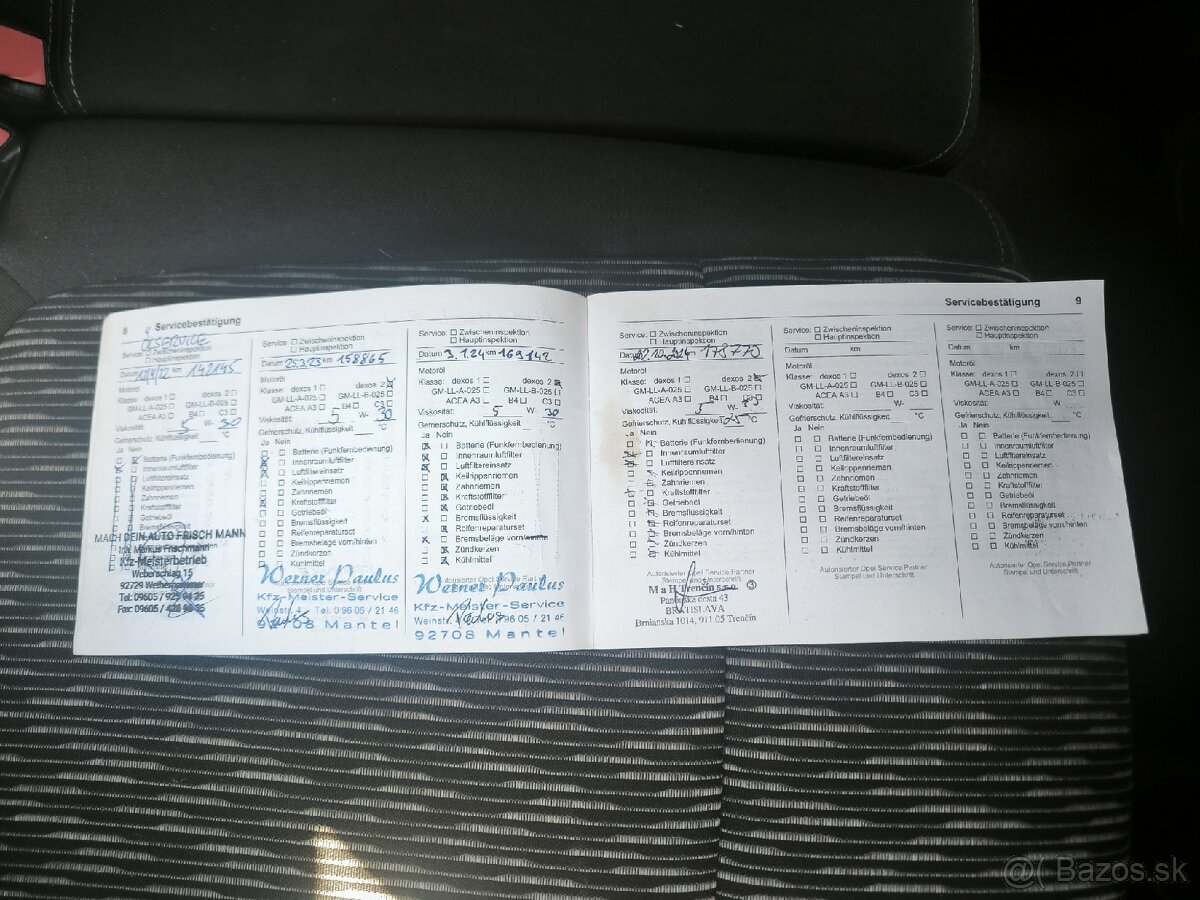 8 Servicebestätigung
ÖLSERVICE
Service: ☐ Zwischeninspektion
☐ Hauptinspektion
Datum km 142145
Motoröl
Klasse: dexos 1 ☐ dexos 2 ☐
GM-LL-A-025 ☐ GM-LL-B-025 ☐
ACEA A3 ☐ B4 ☐ C3 ☐
Viskosität: 5 W- 30
Gefrierschutz, Kühlflüssigkeit °C
Ja Nein
Batterie (Funkfernbedienung)
Innenraumluftfilter
Luftfiltereinsatz
Keilrippenriemen
Zahnriemen
Kraftstofffilter
Getriebeöl
Bremsflüssigkeit
MACH DEIN AUTO FRISCH MANN
Inh. Markus Frischmann
Kfz-Meisterbetrieb
Weberschlag 15
92729 Weiherhammer
Tel: 09605 / 925 94 25
Fax: 09605 /
Service: ☐ Zwischeninspektion
☐ Hauptinspektion
Datum 25.3.23 km 158865
Motoröl
Klasse: dexos 1 ☐ dexos 2 ☒
GM-LL-A-025 ☐ GM-LL-B-025 ☐
ACEA A3 ☐ B4 ☐ C3 ☐
Viskosität: 5 W- 30
Gefrierschutz, Kühlflüssigkeit °C
Ja Nein
Batterie (Funkfernbedienung)
Innenraumluftfilter
Luftfiltereinsatz
Keilrippenriemen
Zahnriemen
Kraftstofffilter
Getriebeöl
Bremsflüssigkeit
Reifenreparaturset
Bremsbeläge vorn/hinten
Zündkerzen
Kühlmittel
Stempel und Unterschrift
Werner Paulus
Kfz-Meister-Service
Weinstr. 4 Tel. 0 96 05 / 21 46
92708 Mantel
Service: ☐ Zwischeninspektion
☐ Hauptinspektion
Datum 3.1.24 km 169142
Motoröl
Klasse: dexos 1 ☐ dexos 2 ☒
GM-LL-A-025 ☐ GM-LL-B-025 ☐
ACEA A3 ☐ B4 ☐ C3 ☐
Viskosität: 5 W- 30
Gefrierschutz, Kühlflüssigkeit °C
Ja Nein
Batterie (Funkfernbedienung)
Innenraumluftfilter
Luftfiltereinsatz
Keilrippenriemen
Zahnriemen
Kraftstofffilter
Getriebeöl
Bremsflüssigkeit
Reifenreparaturset
Bremsbeläge vorn/hinten
Zündkerzen
Kühlmittel
Autorisierter Opel Service Partner
Werner Paulus
Kfz-Meister-Service
Weinstr. 96 05 / 21 46
92708 Mantel
Servicebestätigung 9
Service: ☐ Zwischeninspektion
☐ Hauptinspektion
Datum km 178770
Motoröl
Klasse: dexos 1 ☐ dexos 2 ☒
GM-LL-A-025 ☐ GM-LL-B-025 ☐
ACEA A3 ☐ B4 ☐ C3
Viskosität: 5 W- 30
Gefrierschutz, Kühlflüssigkeit °C
Ja Nein
Batterie (Funkfernbedienung)
Innenraumluftfilter
Luftfiltereinsatz
Keilrippenriemen
Zahnriemen
Kraftstofffilter
Getriebeöl
Bremsflüssigkeit
Reifenreparaturset
Bremsbeläge vorn/hinten
Zündkerzen
Kühlmittel
Autorisierter Opel Service Partner
Stempel und Unterschrift
M a H Trenčín s.r.o. ③
Panónska cesta 43
BRATISLAVA
Brnianska 1014, 911 05 Trenčín
Service: ☐ Zwischeninspektion
☐ Hauptinspektion
Datum km
Motoröl
Klasse: dexos 1 ☐ dexos 2 ☐
GM-LL-A-025 ☐ GM-LL-B-025 ☐
ACEA A3 ☐ B4 ☐ C3 ☐
Viskosität: W-
Gefrierschutz, Kühlflüssigkeit °C
Ja Nein
Batterie (Funkfernbedienung)
Innenraumluftfilter
Luftfiltereinsatz
Keilrippenriemen
Zahnriemen
Kraftstofffilter
Getriebeöl
Bremsflüssigkeit
Reifenreparaturset
Bremsbeläge vorn/hinten
Zündkerzen
Kühlmittel
Autorisierter Opel Service Partner
Stempel und Unterschrift
Service: ☐ Zwischeninspektion
☐ Hauptinspektion
Datum km
Motoröl
Klasse: dexos 1 ☐ dexos 2 ☐
GM-LL-A-025 ☐ GM-LL-B-025 ☐
ACEA A3 ☐ B4 ☐ C3 ☐
Viskosität: W-
Gefrierschutz, Kühlflüssigkeit °C
Ja Nein
Batterie (Funkfernbedienung)
Innenraumluftfilter
Luftfiltereinsatz
Keilrippenriemen
Zahnriemen
Kraftstofffilter
Getriebeöl
Bremsflüssigkeit
Reifenreparaturset
Bremsbeläge vorn/hinten
Zündkerzen
Kühlmittel
Autorisierter Opel Service Partner
Stempel und Unterschrift
Bazos.sk